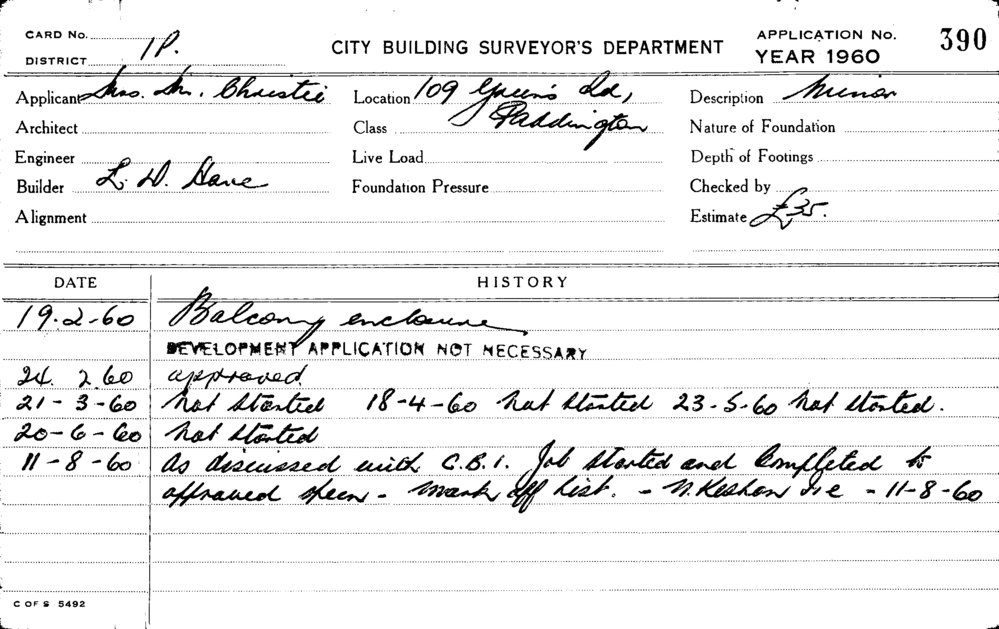 CARD No.
DISTRICT 1P.
CITY BUILDING SURVEYOR'S DEPARTMENT
APPLICATION No. 390
YEAR 1960
Applicant Mrs. M. Christie
Location 109 Green's Rd,
Paddington
Description Minor
Architect
Class
Nature of Foundation
Engineer
Live Load
Depth of Footings
Builder L. D.
Foundation Pressure
Checked by
Alignment
Estimate £35.
DATE HISTORY
19.2-60 Balcony enclosure
DEVELOPMENT APPLICATION NOT NECESSARY
24. 2.60 approved.
21-3-60 Not started 18-4-60 Not started 23-5-60 Not started.
20-6-60 Not started
11-8-60 As discussed with C.B.I. Job started and Completed to
approved specn - mark off list. - N. - 11-8-60
C OF S 5492